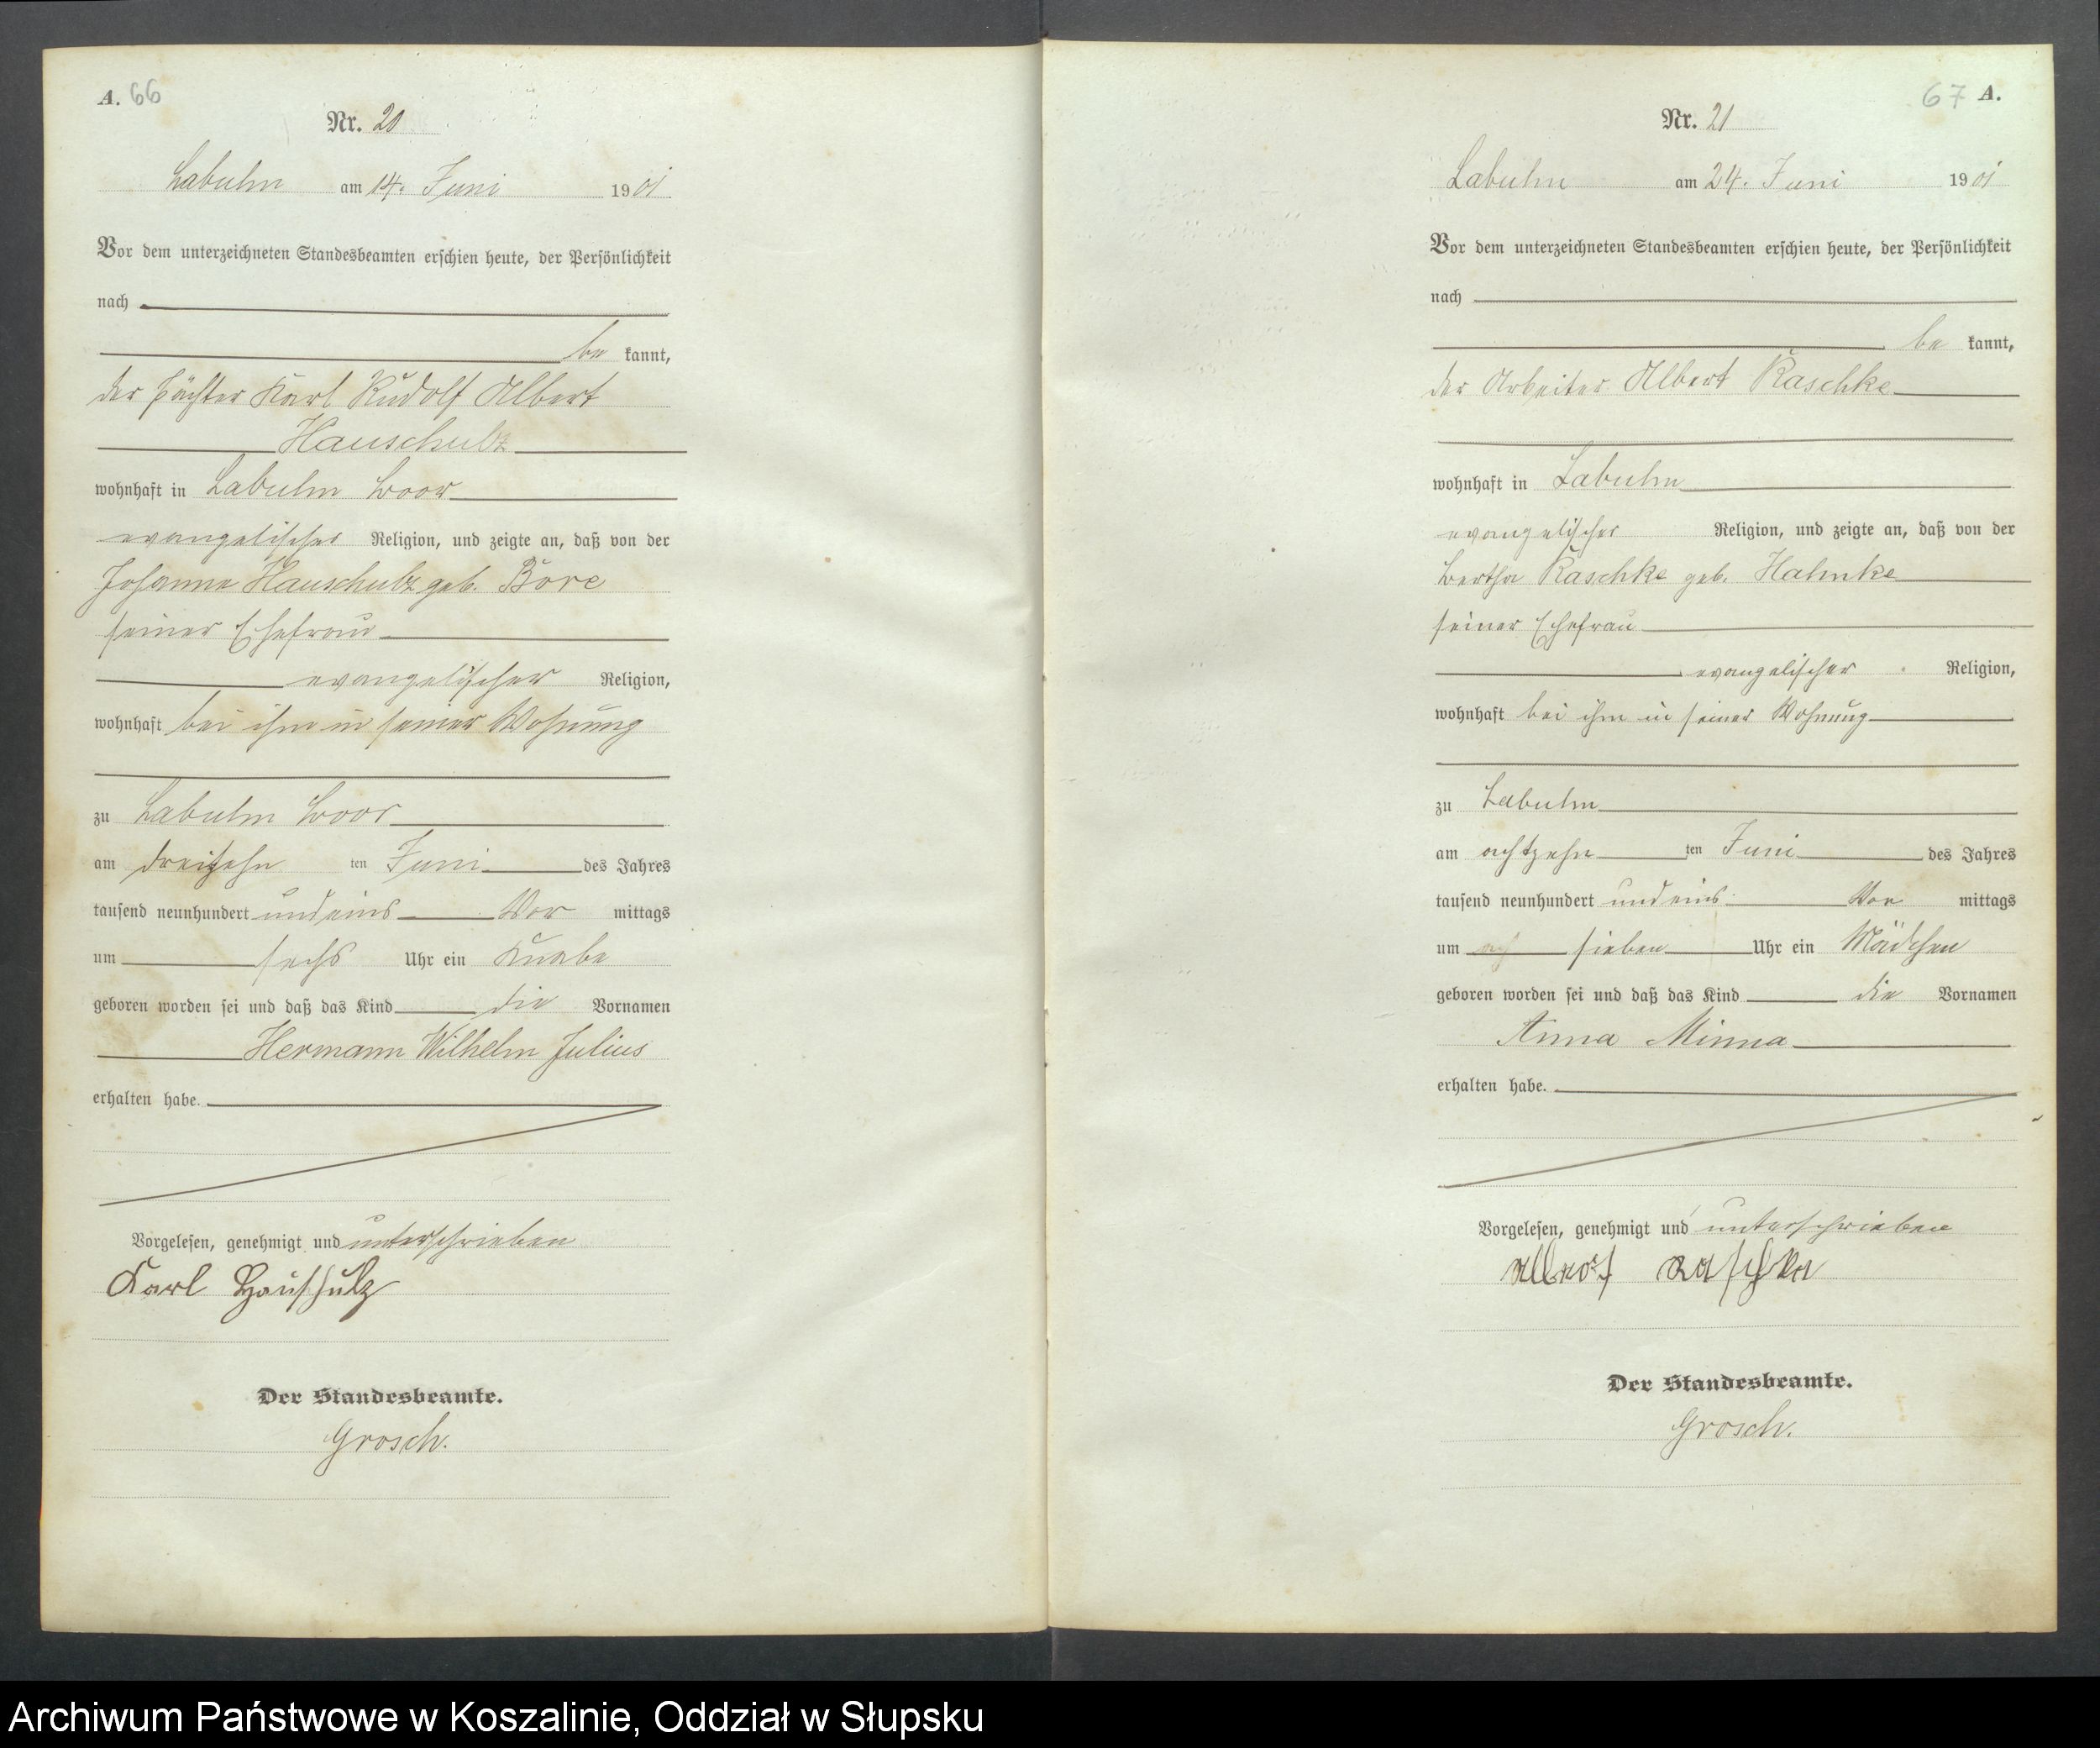 A. 66
Nr. 20
Labuhn am 14. Juni 1901
Vor dem unterzeichneten Standesbeamten erschien heute, der Persönlichkeit
nach
be kannt,
der Pächter Karl Rudolf Albert
Hauschulz
wohnhaft in Labuhn
evangelischer Religion, und zeigte an, daß von der
Johanna Hauschulz geb. Bore
seiner Ehefrau
evangelischer Religion,
wohnhaft bei ihm in seiner Wohnung
zu Labuhn
am dreizehn ten Juni des Jahres
tausend neunhundert und eins Vor mittags
um sechs Uhr ein Knabe
geboren worden sei und daß das Kind die Vornamen
Hermann Wilhelm Julius
erhalten habe.
Vorgelesen, genehmigt und unterschrieben
Karl Hauschulz
Der Standesbeamte.
Grosch.
67 A.
Nr. 21
Labuhn am 24. Juni 1901
Vor dem unterzeichneten Standesbeamten erschien heute, der Persönlichkeit
nach
be kannt,
der Arbeiter Albert Raschke
wohnhaft in Labuhn
evangelischer Religion, und zeigte an, daß von der
Bertha Raschke geb. Hahnke
seiner Ehefrau
evangelischer Religion,
wohnhaft bei ihm in seiner Wohnung
zu Labuhn
am achtzehn ten Juni des Jahres
tausend neunhundert und eins Vor mittags
um sieben Uhr ein Mädchen
geboren worden sei und daß das Kind die Vornamen
Anna Minna
erhalten habe.
Vorgelesen, genehmigt und unterschrieben
Albert Raschke
Der Standesbeamte.
Grosch.
Archiwum Państwowe w Koszalinie, Oddział w Słupsku